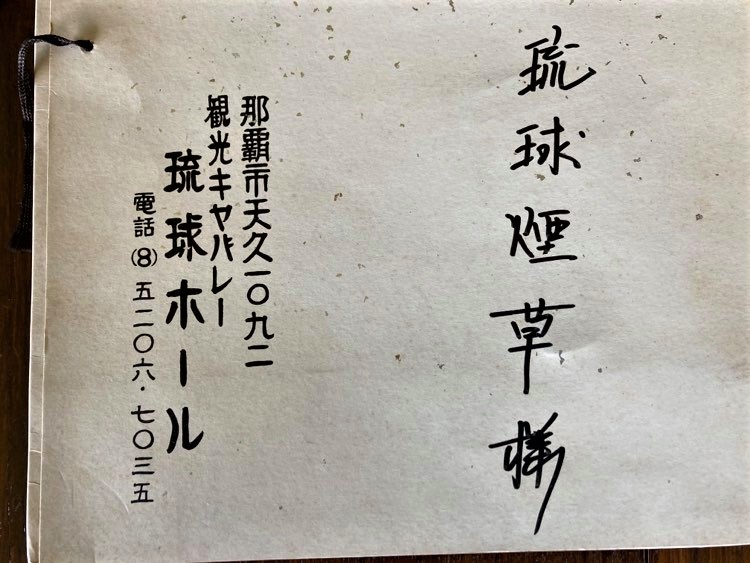 琉球煙草様
那覇市天久一〇九二
観光キャバレー
琉球ホール
電話(8)五二〇六・七〇三五